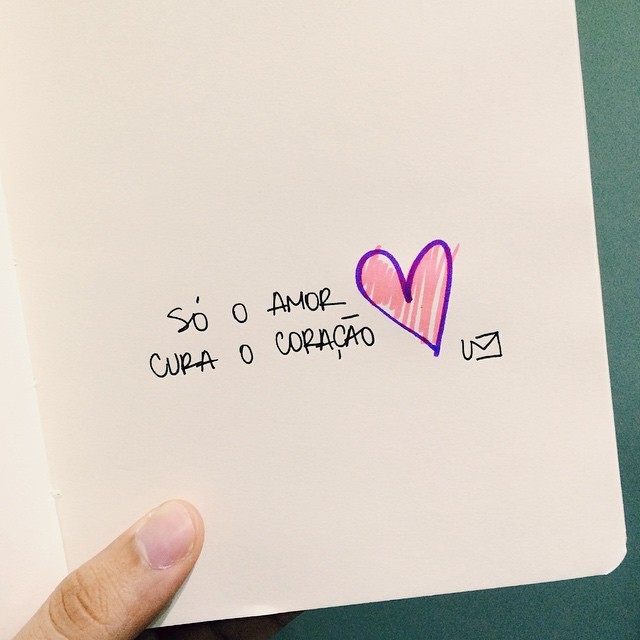 SÓ O AMOR
CURA O CORAÇÃO